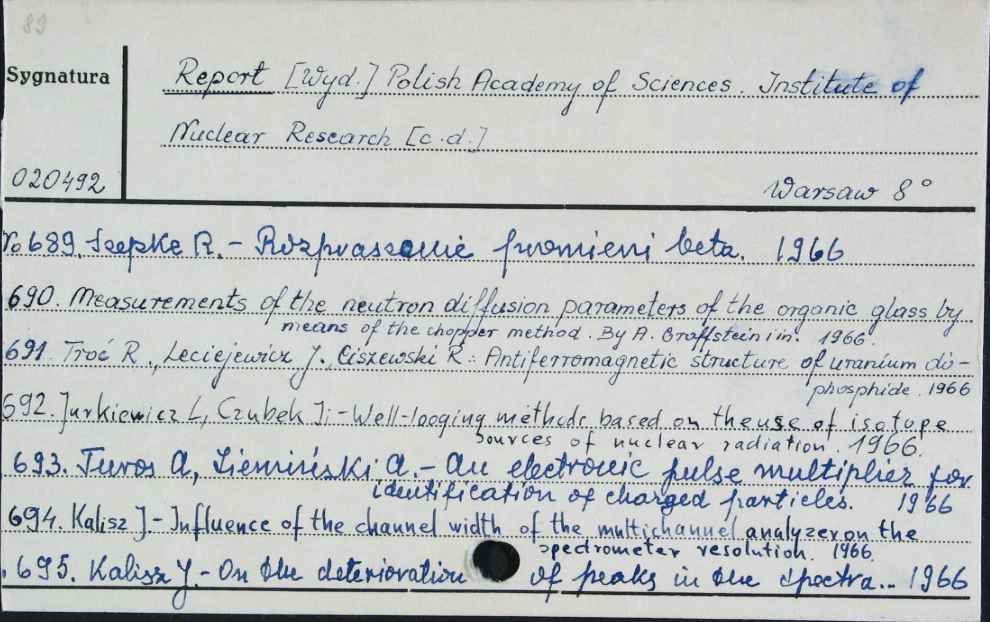 89
Sygnatura
Report [Wyd.] Polish Academy of Sciences. Institute of
Nuclear Research [c.d.]
020492
Warsaw 8°
No 689. Szepke R. - Rozpraszanie promieni beta. 1966
690. Measurements of the neutron diffusion parameters of the organic glass by
means of the chopper method. By A. i in. 1966.
691. Troć R., Leciejewicz J., Ciszewski R.: Antiferromagnetic structure of uranium di-
phosphide. 1966
692. Jurkiewicz L, Czubek J: - Well-looging methods based on the use of isotope
sources of nuclear radiation. 1966.
693. Turos A, Ziemiński A. - An electronic pulse multiplier for
identification of charged particles. 1966
694. Kalisz J - Influence of the channel width of the multichannel analyzer on the
spectrometer resolution. 1966.
695. Kalisz J. - On the deterioration of peaks in the spectra.. 1966